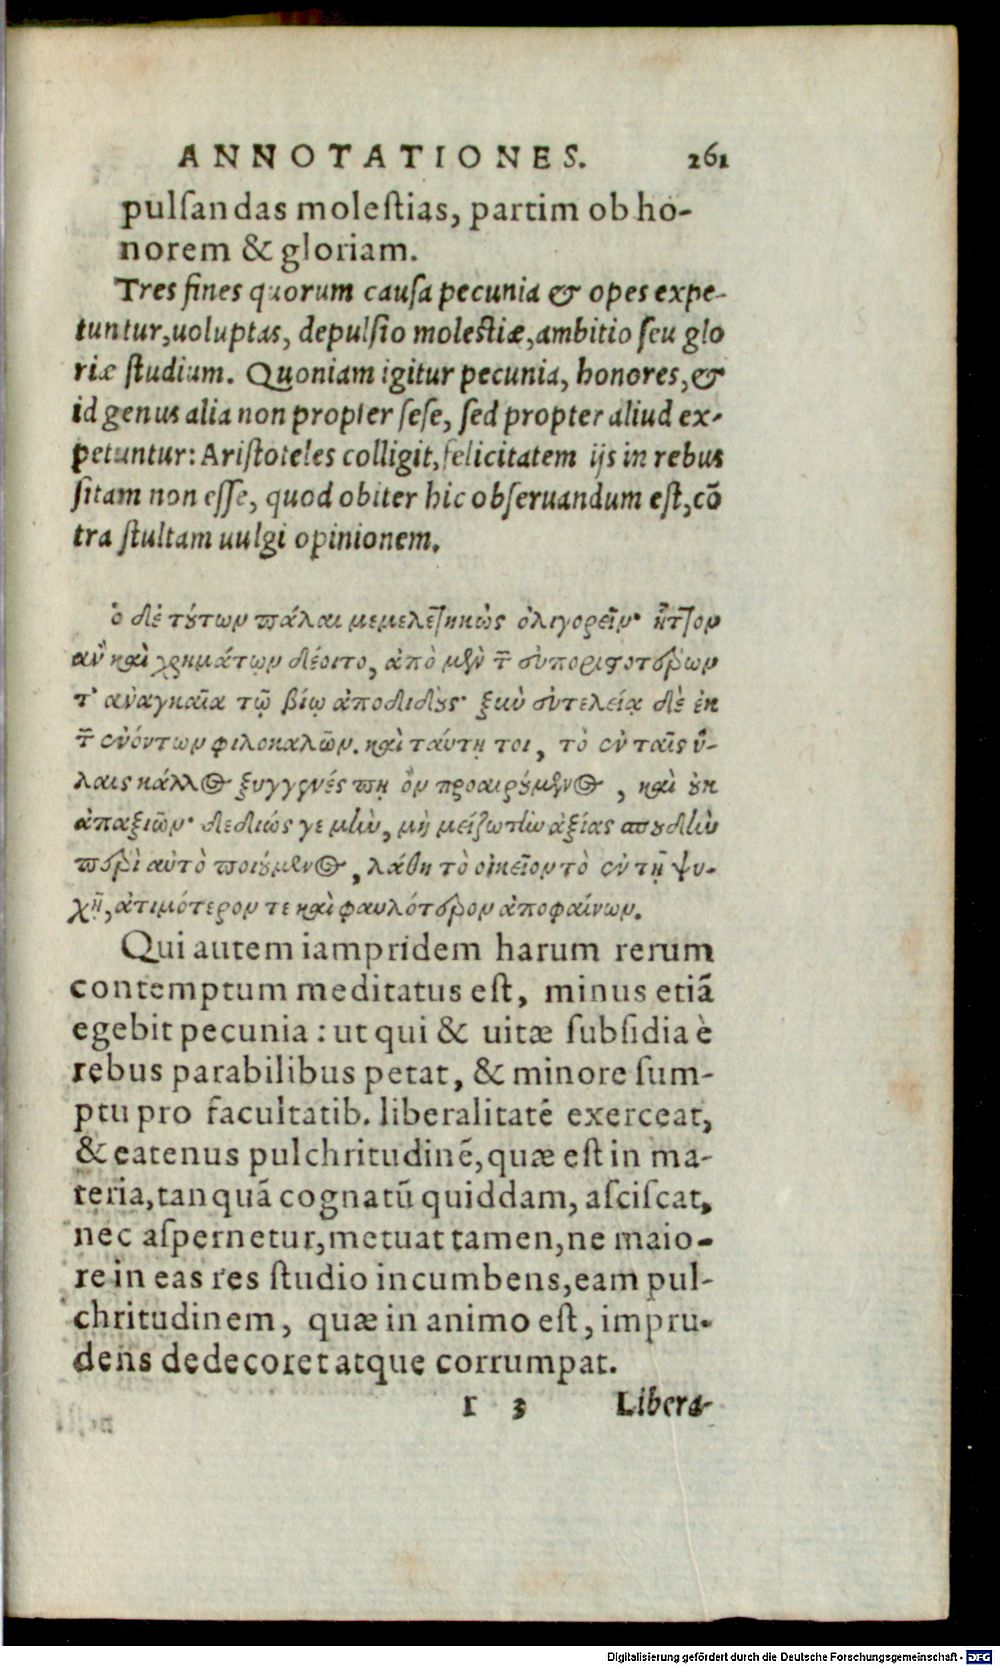 ANNOTATIONES. 261
pulſandas moleſtias, partim ob ho-
norem & gloriam.
Tres fines quorum cauſa pecunia & opes expe-
tuntur, uoluptas, depulſio moleſtiæ, ambitio ſeu glo
riæ ſtudium. Quoniam igitur pecunia, honores, &
id genus alia non propter ſeſe, ſed propter aliud ex-
petuntur: Ariſtoteles colligit, felicitatem ijs in rebus
ſitam non eſſe, quod obiter hic obſeruandum eſt, cō
tra ſtultam uulgi opinionem.
ὁ δὲ τούτων πάλαι μεμελετηκὼς ὀλιγορεῖν· ἧττον
ἂν καὶ χρημάτων δέοιτο, ἀπὸ μὲν τ̄ συποριστοτέρων
τ' ἀναγκαῖα τῷ βίῳ ἀποδιδούς· ξὺν εὐτελείᾳ δὲ ἐκ
τ̄ ἐνόντων φιλοκαλῶν. καὶ ταύτῃ τοι, τὸ ἐν ταῖς ὕ-
λαις κάλλος ξυγγενές πῃ ὂν προαιρούμενος, καὶ οὐκ
ἀπαξιῶν· δεδιώς γε μὴν, μὴ μείζω τὴν ἀξίας σπουδὴν
περὶ αὐτὸ ποιούμενος, λάθῃ τὸ οἰκεῖον τὸ ἐν τῇ ψυ-
χῇ, ἀτιμότερον τε καὶ φαυλότερον ἀποφαίνων.
Qui autem iampridem harum rerum
contemptum meditatus eſt, minus etiā
egebit pecunia: ut qui & uitæ ſubſidia è
rebus parabilibus petat, & minore ſum-
ptu pro facultatib. liberalitatē exerceat,
& eatenus pulchritudinē, quæ eſt in ma-
teria, tanquā cognatū quiddam, aſciſcat,
nec aſpernetur, metuat tamen, ne maio-
re in eas res ſtudio incumbens, eam pul-
chritudinem, quæ in animo eſt, impru-
dens dedecoret atque corrumpat.
r 3 Libera-
Digitalisierung gefördert durch die Deutsche Forschungsgemeinschaft - DFG